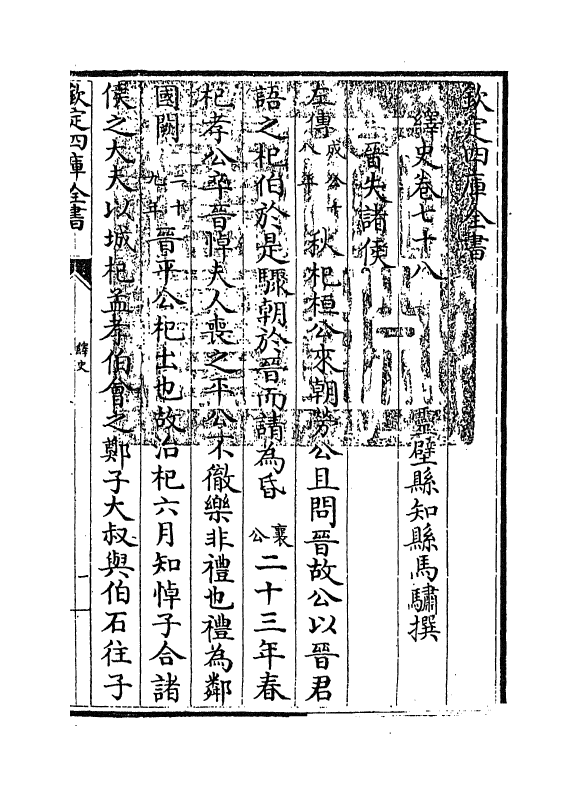 欽定四庫全書
繹史卷七十八
靈壁縣知縣馬驌撰
晉失諸侯
左傳成公十八年秋杞桓公來朝勞公且問晉故公以晉君
語之杞伯於是驟朝於晉而請為昏 襄公二十三年春
杞孝公卒晉悼夫人喪之平公不徹樂非禮也禮為鄰
國闕 二十九年晉平公杞出也故治杞六月知悼子合諸
侯之大夫以城杞孟孝伯會之鄭子大叔與伯石往子
欽定四庫全書
繹史
一